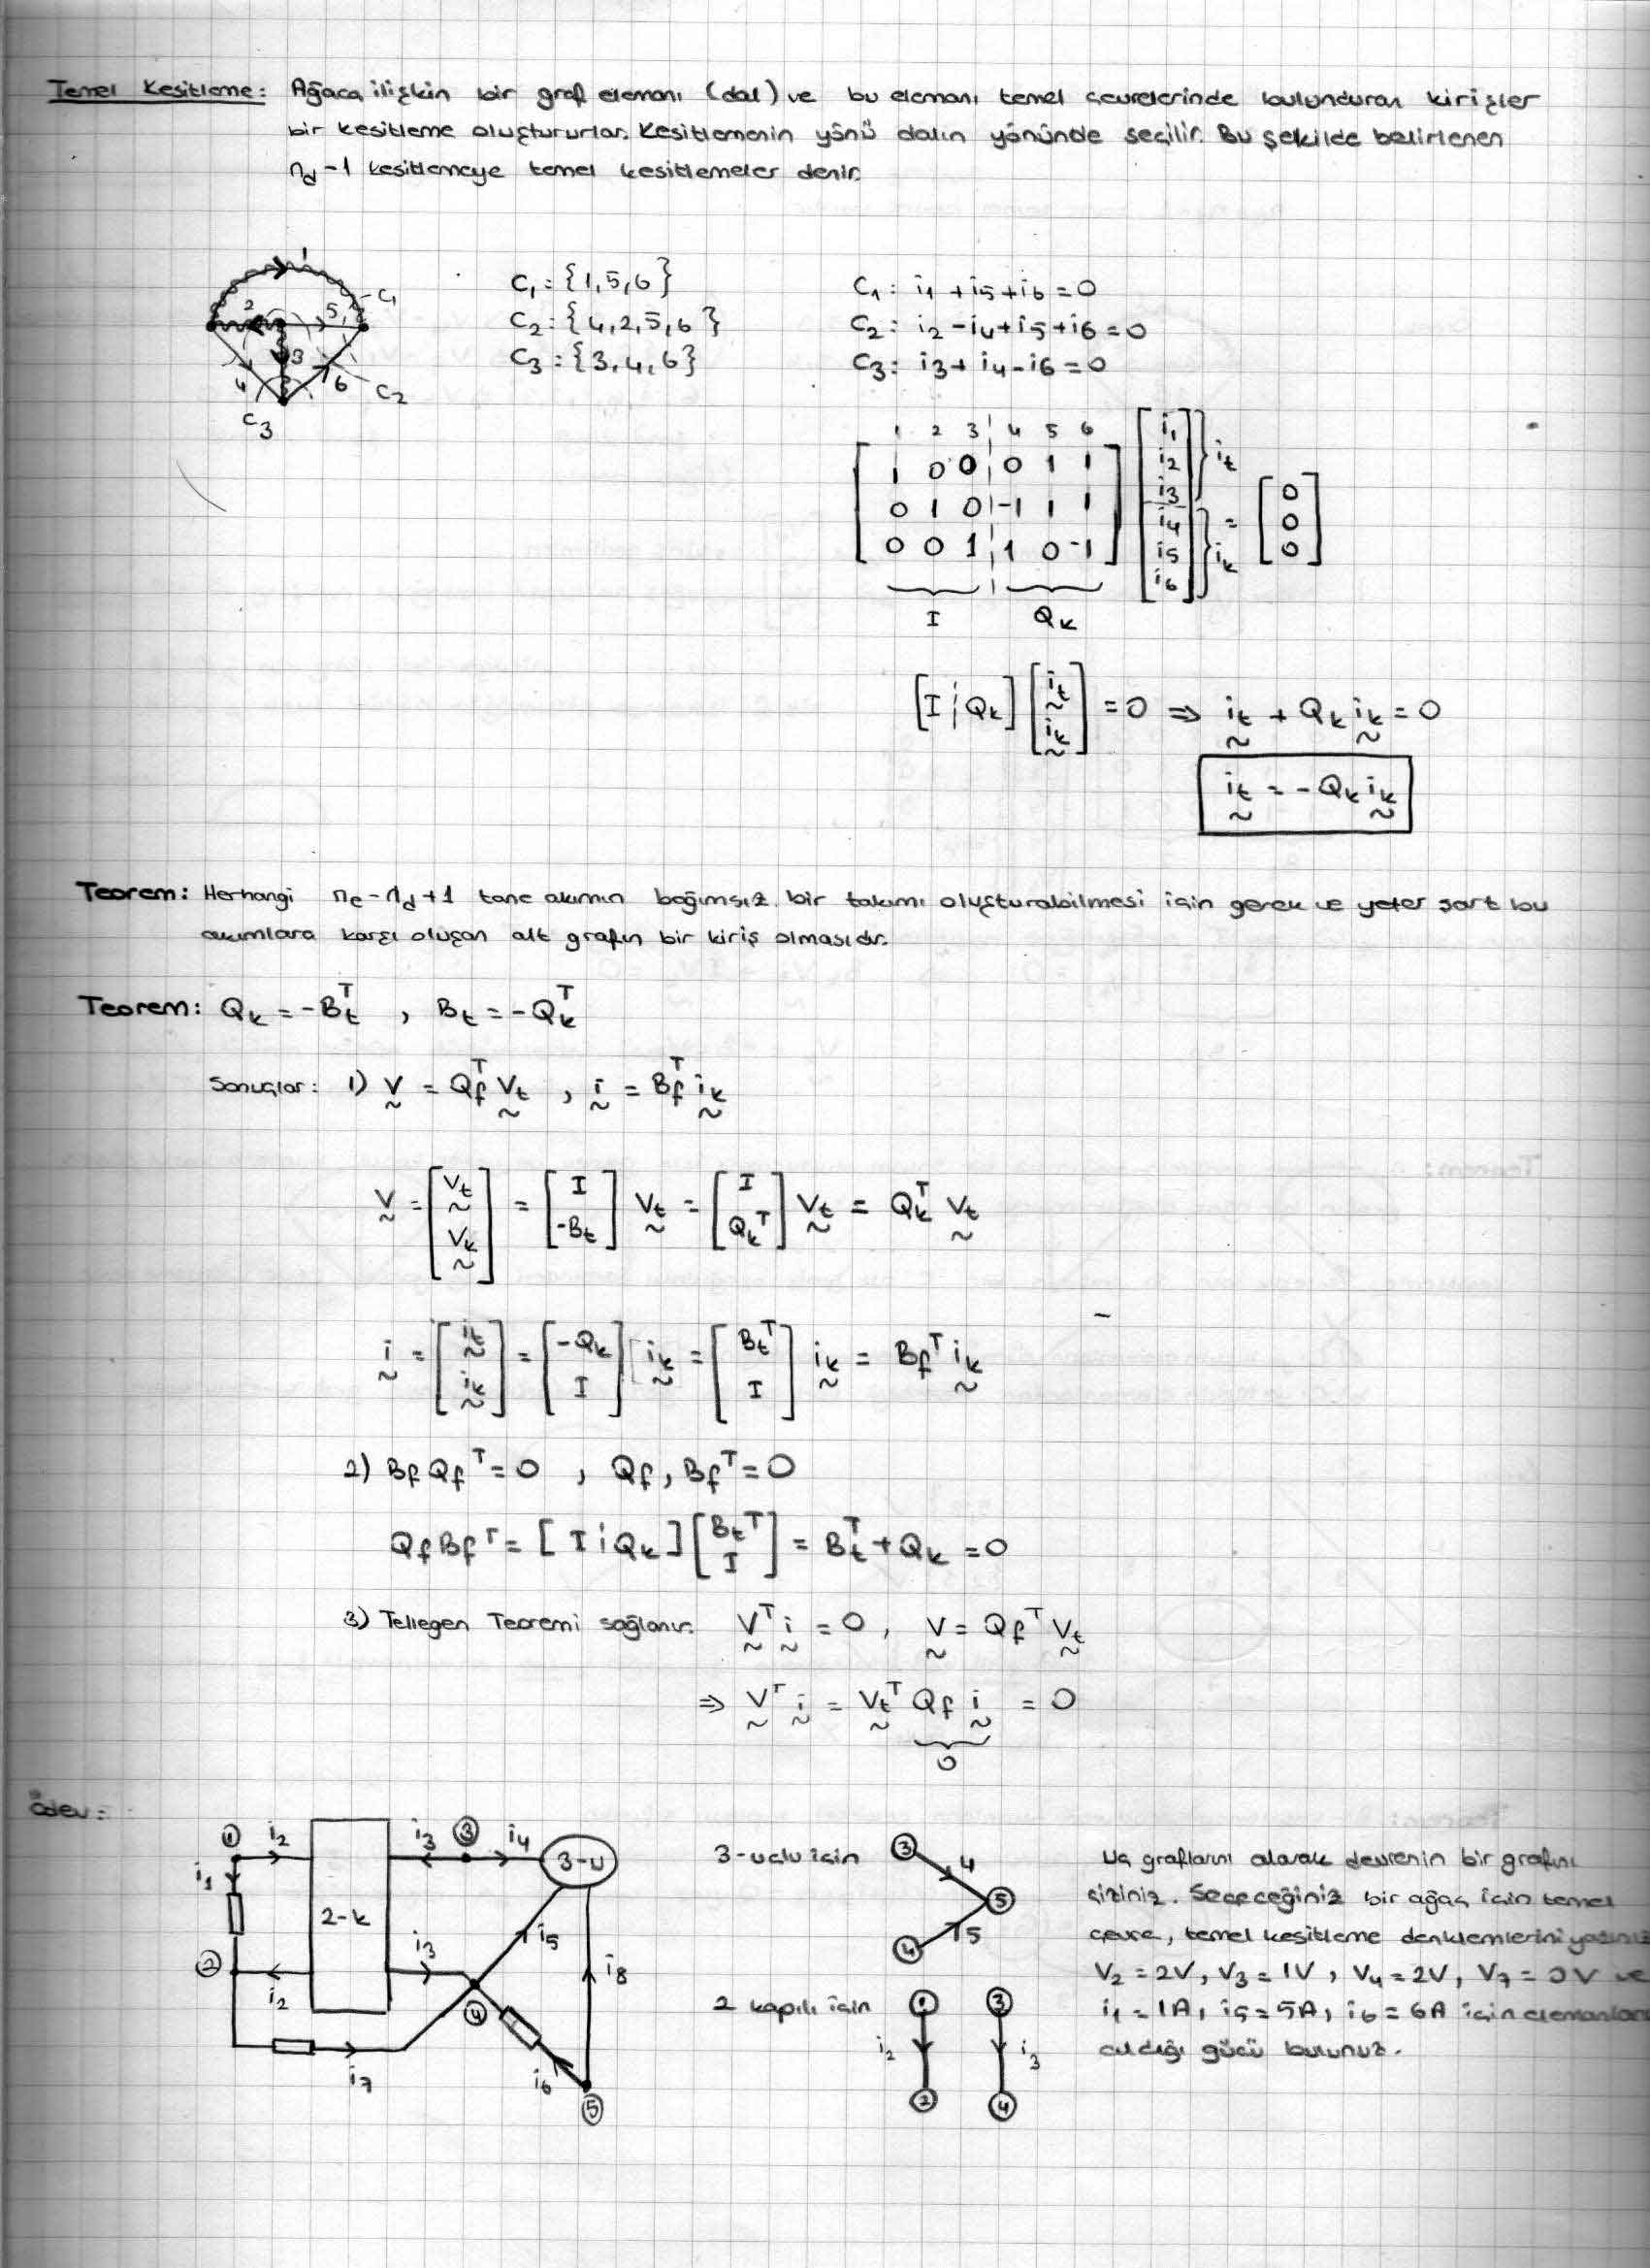 Temel Kesitleme: Ağaca ilişkin bir graf elemanı (dal) ve bu elemanı temel çevrelerinde bulunduran kirişler
bir kesitleme oluştururlar. Kesitlemenin yönü dalın yönünde seçilir. Bu şekilde belirlenen
n_d -1 kesitlemeye temel kesitlemeler denir.
1
2
5
C₁
3
4
6
C₂
C₃
C₁ = {1,5,6}
C₂ = {4,2,5,6}
C₃ = {3,4,6}
C₁: i₁ + i₅ + i₆ = 0
C₂: i₂ - i₄ + i₅ + i₆ = 0
C₃: i₃ + i₄ - i₆ = 0
1 2 3 4 5 6
1 0 0 0 1 1
0 1 0 -1 1 1
0 0 1 1 0 -1
i₁
i₂
i₃
i₄
i₅
i₆
i_t
i_k
=
0
0
0
I Q_k
[I ¦ Q_k] [i_t i_k] = 0 ⇒ i_t + Q_k i_k = 0
i_t = - Q_k i_k
Teorem: Herhangi n_e - n_d + 1 tane akımın bağımsız bir takımı oluşturabilmesi için gerek ve yeter şart bu
akımlara karşı oluşan alt grafın bir kiriş olmasıdır.
Teorem: Q_k = -B_t^T , B_t = -Q_k^T
Sonuçlar: 1) V = Q_f^T V_t , i = B_f^T i_k
V = [V_t V_k] = [I -B_t] V_t = [I Q_k^T] V_t = Q_k^T V_t
i = [i_t i_k] = [-Q_k I] i_k = [B_t^T I] i_k = B_f^T i_k
2) B_f Q_f^T = 0 , Q_f, B_f^T = 0
Q_f B_f^T = [I ¦ Q_k] [B_t^T I] = B_t^T + Q_k = 0
3) Tellegen Teoremi sağlanır. V^T i = 0 , V = Q_f^T V_t
⇒ V^T i = V_t^T Q_f i = 0
0
Ödev:
① i₂ i₃ ③ i₄ 3-u
i₁ 2-k
② i₂ i₃ i₅ i₈
④
i₇ i₆
⑤
3-uçlu için
③ 4
⑤
④ 5
2 kapılı için
① ③
i₂ i₃
② ④
Uç graflarını alarak devrenin bir grafını
çiziniz. Seçeceğiniz bir ağaç için temel
çevre, temel kesitleme denklemlerini
V₂ = 2V, V₃ = 1V, V₄ = 2V, V₇ = 3V ve
i₁ = 1A, i₅ = 5A, i₆ = 6A için
aldığı gücü bulunuz.